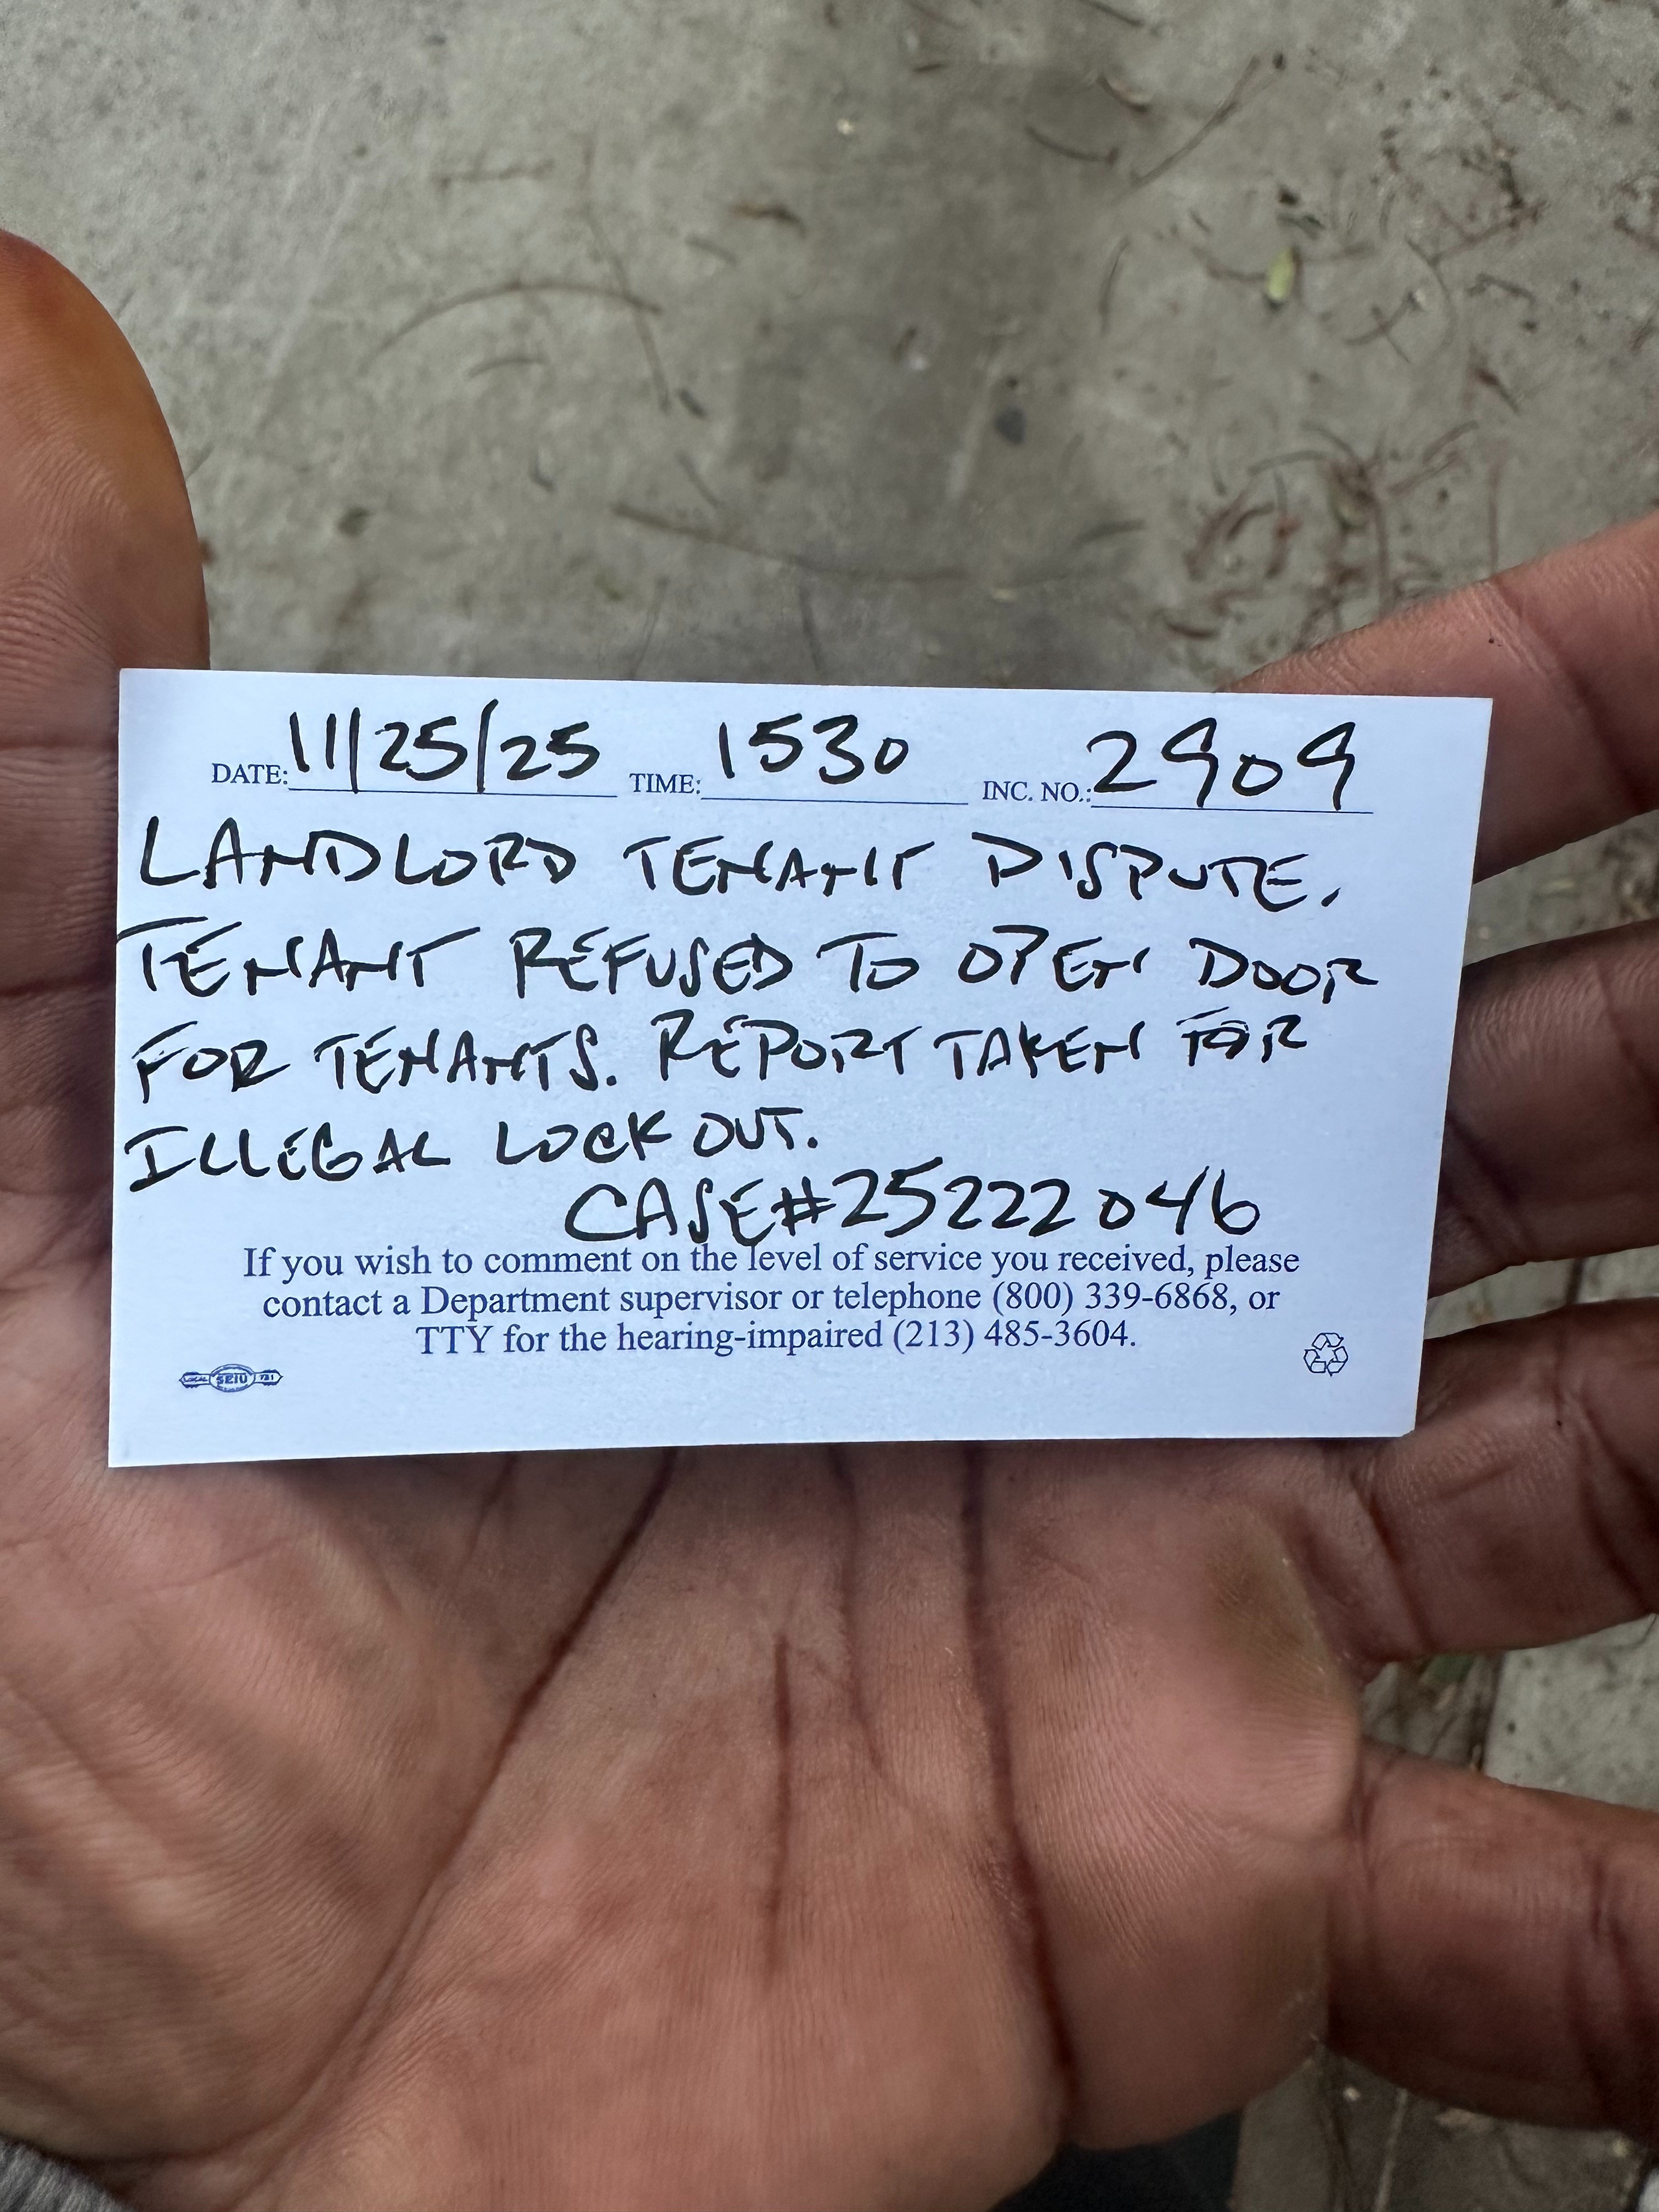 DATE: 11/25/25 TIME: 1530 INC. NO.: 2909
LANDLORD TENANT DISPUTE.
TENANT REFUSED TO OPEN DOOR
FOR TENANTS. REPORT TAKEN FOR
ILLEGAL LOCK OUT.
CASE#25222046
If you wish to comment on the level of service you received, please
contact a Department supervisor or telephone (800) 339-6868, or
TTY for the hearing-impaired (213) 485-3604.
SEIU